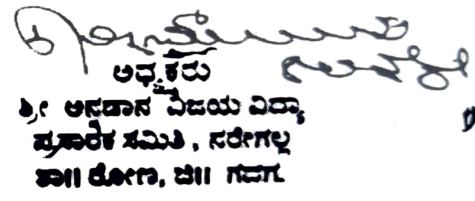 ಅಧ್ಯಕ್ಷರು
ಶ್ರೀ ಅನ್ನದಾನ ವಿಜಯ ವಿದ್ಯಾ
ಪ್ರಸಾರಕ ಸಮಿತಿ, ನರೇಗಲ್ಲ
ತಾ॥ ರೋಣ, ಜಿ॥ ಗದಗ